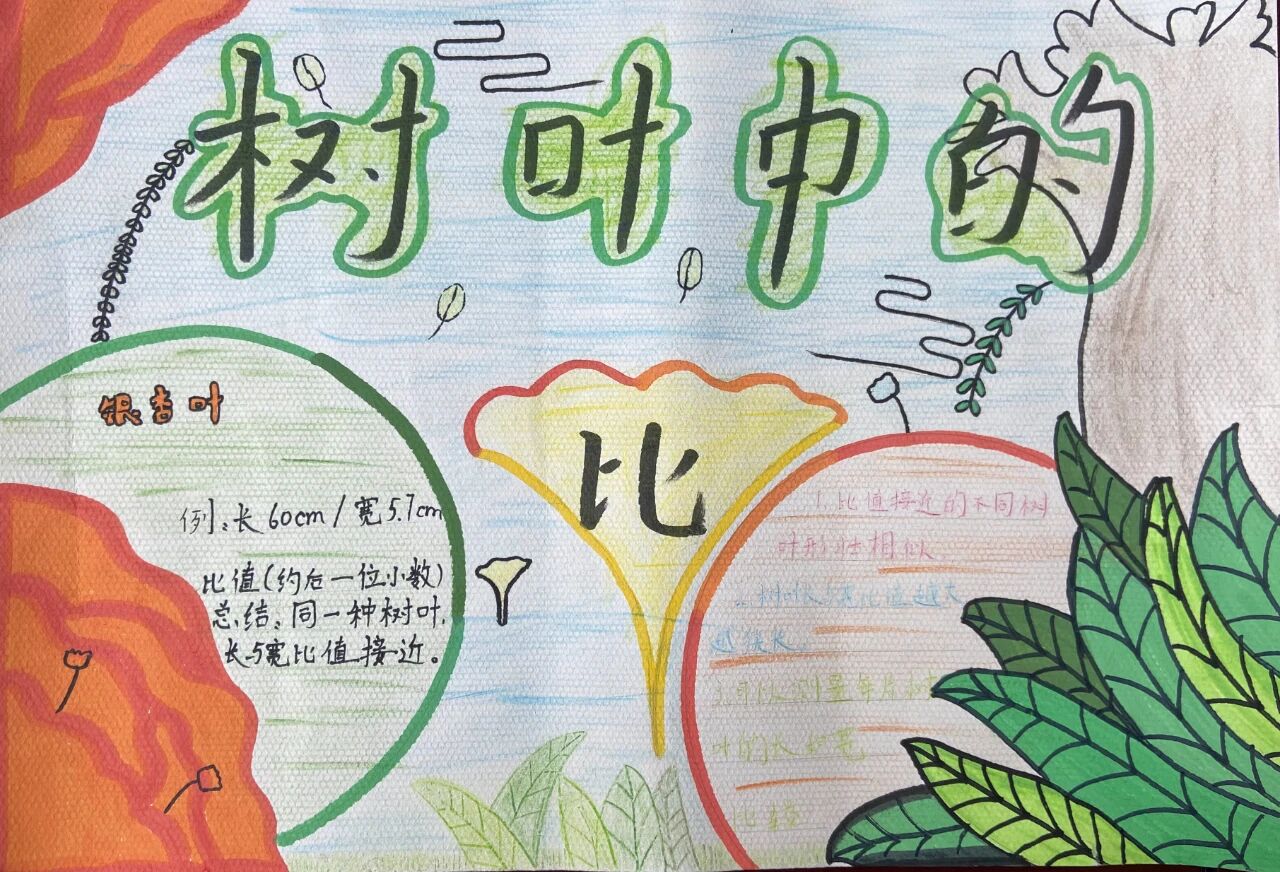 树叶中的
比
银杏叶
例:长60cm/宽5.7cm
比值(约后一位小数)
总结:同一种树叶,
长与宽比值接近。
1.比值接近的不同树
叶形状相似
2.树叶长与宽比值越大
越狭长
3.可以测量每片树
叶的长和宽